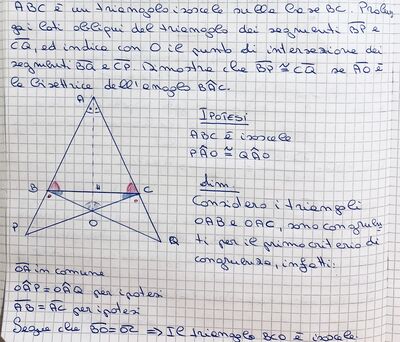 ABC è un triangolo isoscele sulla base BC. Prolun
ga i lati obliqui del triangolo dei segmenti BP e
CQ, ed indica con O il punto di intersezione dei
segmenti BQ e CP. Dimostra che BP ≅ CQ se AO è
la bisettrice dell'angolo BÂC.
IPOTESI
ABC è isoscele
PÂO ≅ QÂO
dim.
Considero i triangoli
OAB e OAC, sono congruen
ti per il primo criterio di
congruenza, infatti:
A
B
H
C
O
P
Q
OA in comune
OÂP = OÂQ per ipotesi
AB = AC per ipotesi
Segue che BO = OC ⇒ Il triangolo BCO è isoscele.